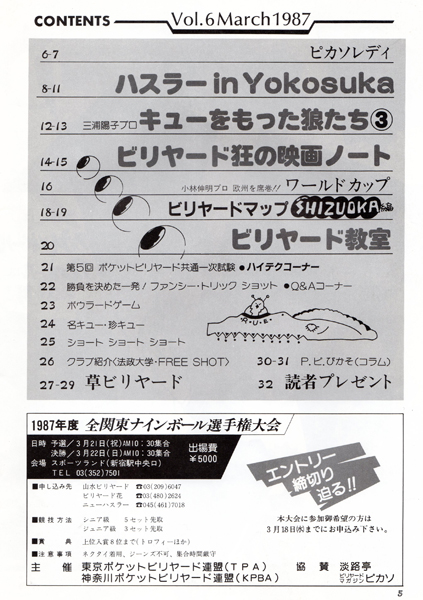 CONTENTS Vol.6 March 1987
6-7 ピカソレディ
8-11 ハスラー in Yokosuka
12-13 三浦陽子プロ キューをもった狼たち③
14-15 ビリヤード狂の映画ノート
16 小林伸明プロ 欧州を席巻!! ワールドカップ
18-19 ビリヤードマップ SHIZUOKA
20 ビリヤード教室
21 第5回 ポケットビリヤード共通一次試験 ●ハイテクコーナー
22 勝負を決めた一発!ファンシー・トリック ショット ●Q&Aコーナー
23 ボウラードゲーム
24 名キュー・珍キュー
25 ショート ショート ショート
26 クラブ紹介〈法政大学・FREE SHOT〉
30-31 P.ビ.ぴかそ(コラム)
27-29 草ビリヤード
32 読者プレゼント
1987年度 全関東ナインボール選手権大会
日時 予選/3月21日(祝)AM10:30集合
決勝/3月22日(日)AM10:30集合
会場 スポーツランド(新宿駅中央口)
TEL 03(352)7501
出場費
¥5000
エントリー
締切り
迫る!!
■申し込み先 山水ビリヤード ☎03(209)6047
ビリヤード花 ☎03(480)2624
ニューハスラー ☎045(461)7018
■競技方法 シニア級 5セット先取
ジュニア級 3セット先取
■賞典 上位入賞8位まで(トロフィーほか)
■注意事項 ネクタイ着用、ジーンズ不可、集合時間厳守
本大会に参加御希望の方は
3月18日(水)までにお申込み下さい。
主催 東京ポケットビリヤード連盟(TPA)
神奈川ポケットビリヤード連盟(KPBA)
協賛 淡路亭
ビリヤードマガジン ピカソ
5